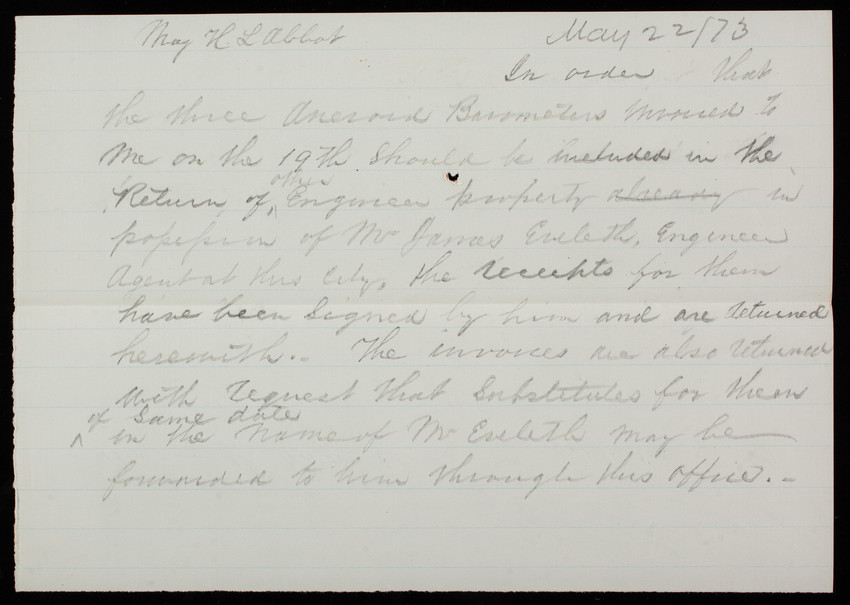 Maj H L Abbot May 22/73
In order that
the three Aneroid Barometers invoiced to
me on the 19th should be included in the
Return of, other Engineer property already in
possession of Mr James Eveleth, Engineer
Agent at this City, the receipts for them
have been signed by him and are returned
herewith.- The invoices are also returned
with request that Substitutes for them
of Same date
in the name of Mr Eveleth may be
forwarded to him through this office.-